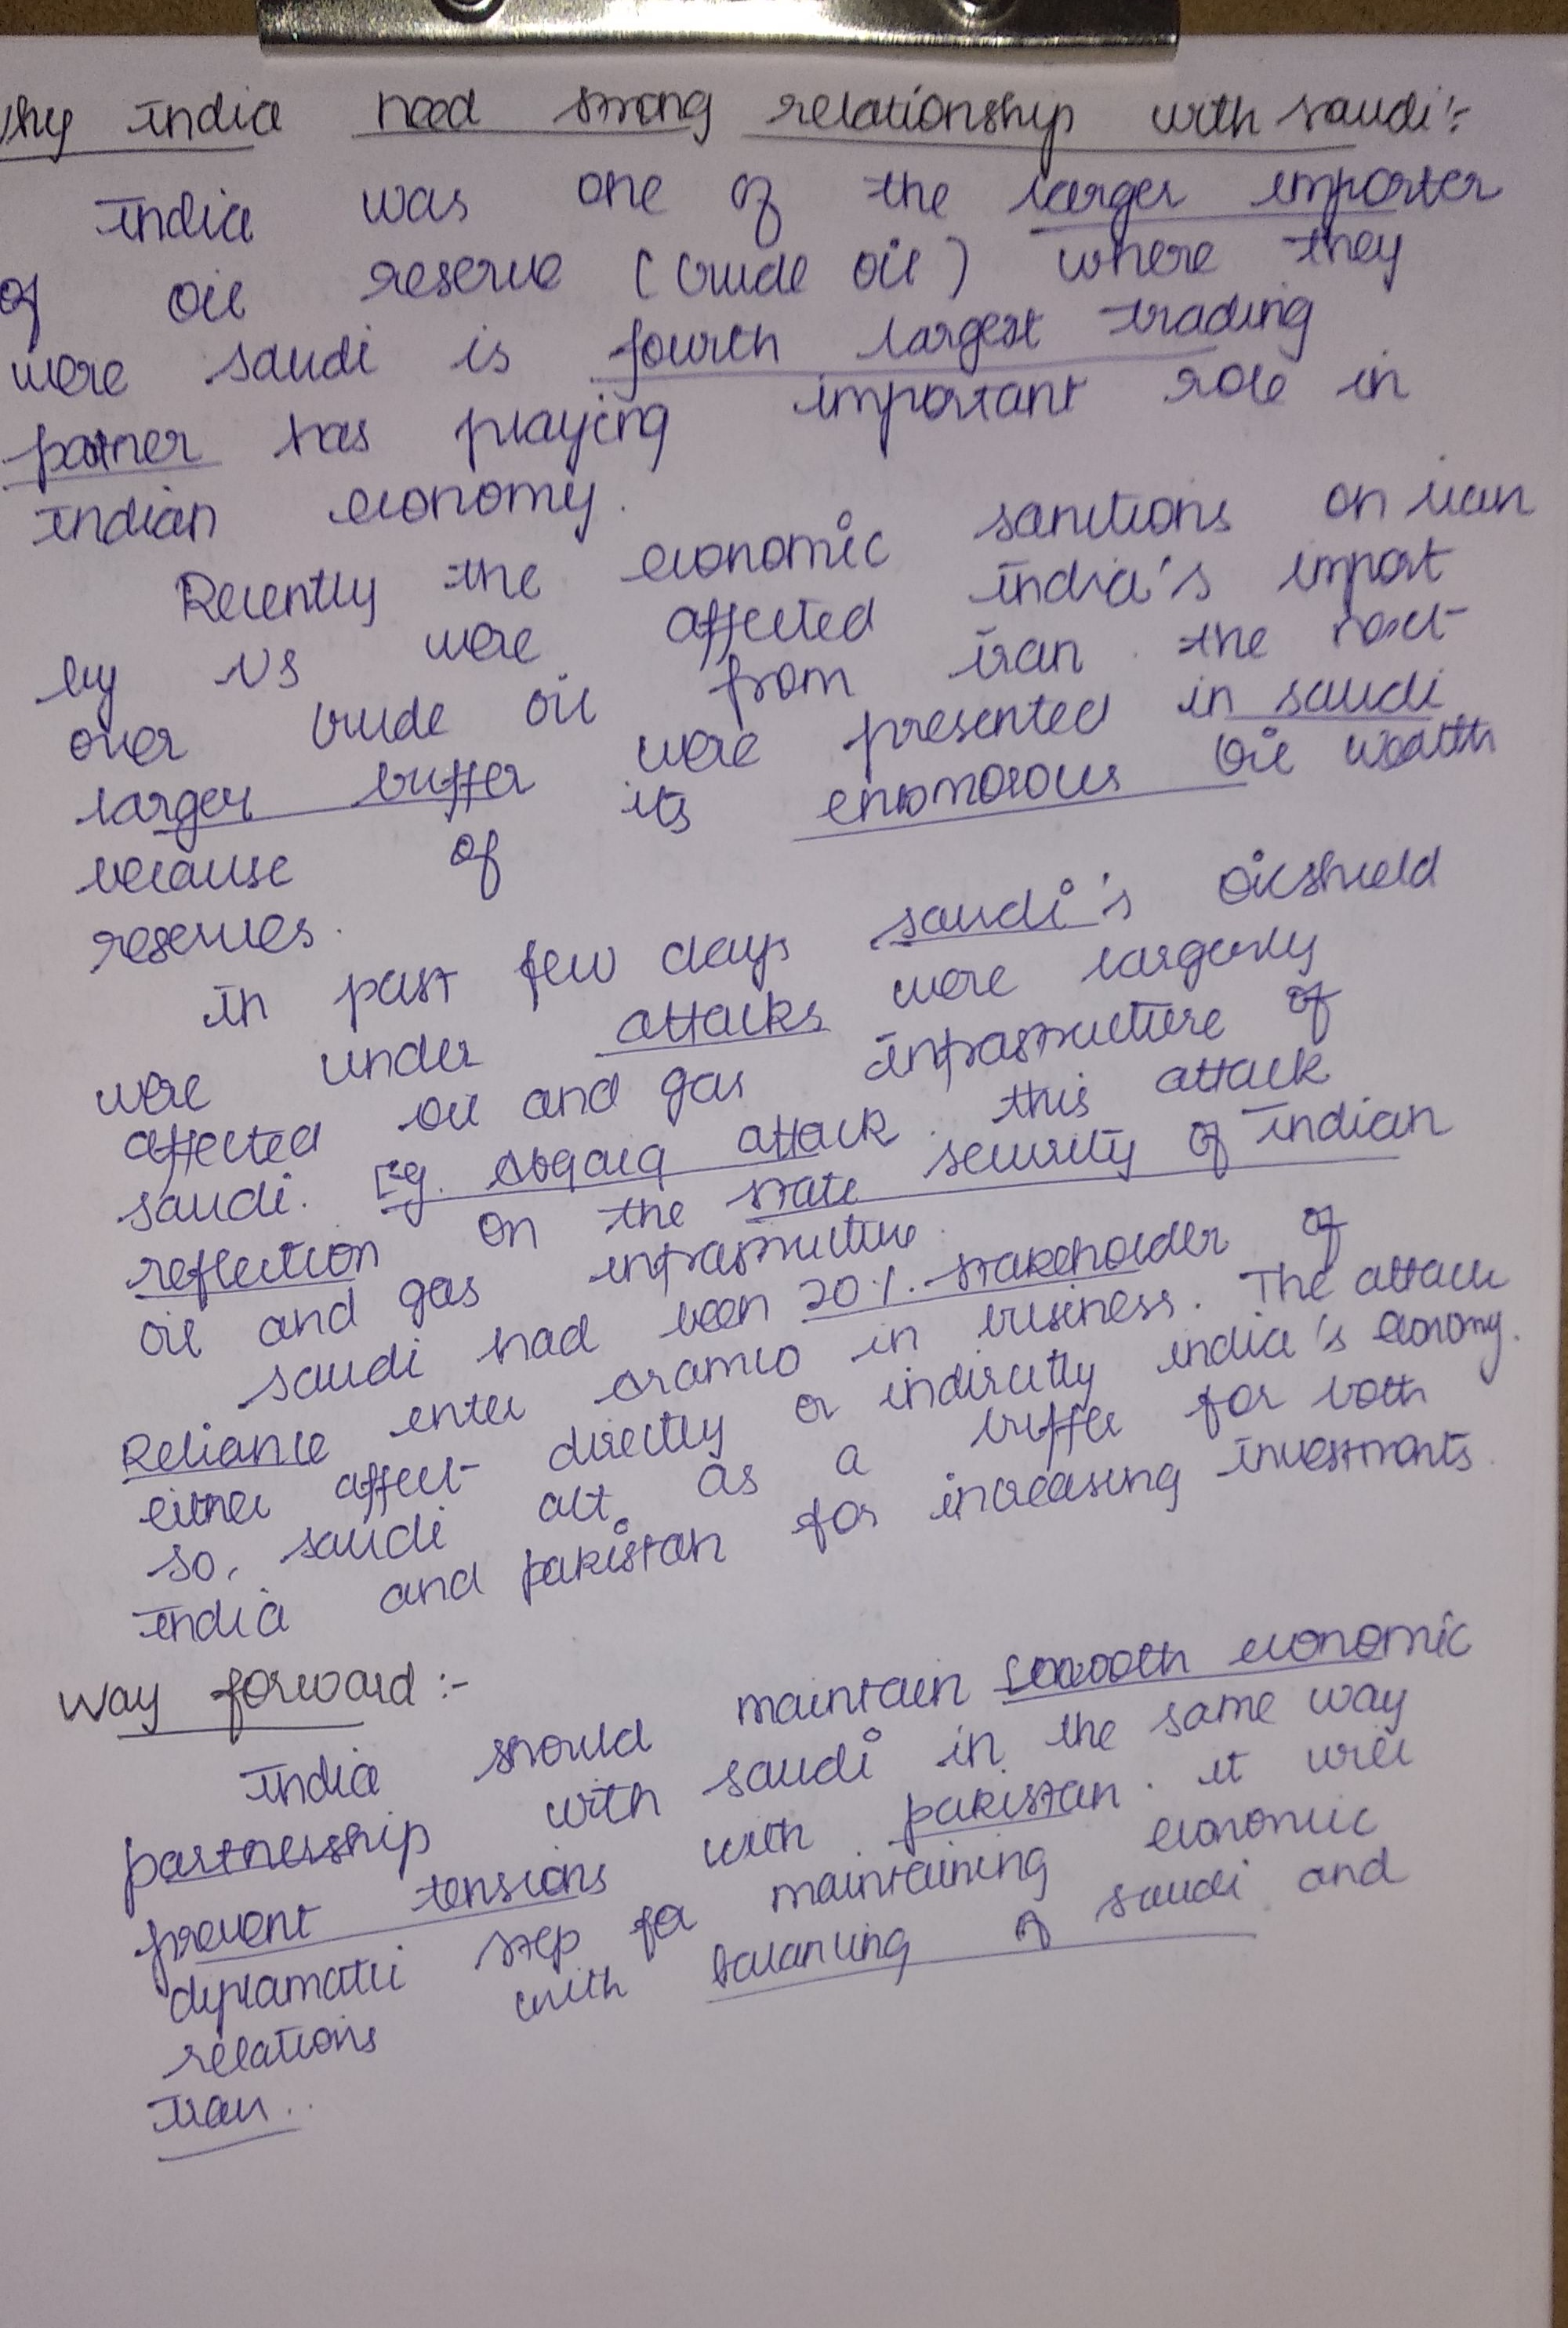 hy India need strong relationship with saudi:-
India was one of the larger importer
of oil reserve (crude oil) where they
were saudi is fourth largest trading
partner has playing important role in
Indian economy.
Recently the economic sanctions on iran
by US were affected India's import
over crude oil from Iran. the next
larger buffer were presented in saudi
because of its enormorous oil wealth
reserves.
In past few days saudi's oilshield
were under attacks were largerly
affected oil and gas infrastructure of
saudi. Eg. Abqaiq attack. this attack
reflection on the state security of Indian
oil and gas infrastructure.
saudi had been 20%. stakeholder of
Reliance enter aramco in business. The attack
either affect directly or indirectly india's economy.
so, saudi act as a buffer for both
India and pakistan for increasing investments.
Way forward:-
India should maintain smooth economic
partnership with saudi in the same way
prevent tensions with pakistan. it will
diplamatic step for maintaining economic
relations with balancing of saudi and
Iran..